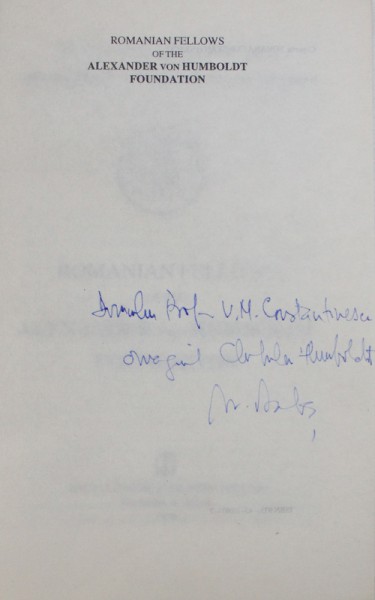 ROMANIAN FELLOWS
OF THE
ALEXANDER VON HUMBOLDT
FOUNDATION
Domnului Prof V.M. Constantinescu
omagiul Clubului Humboldt